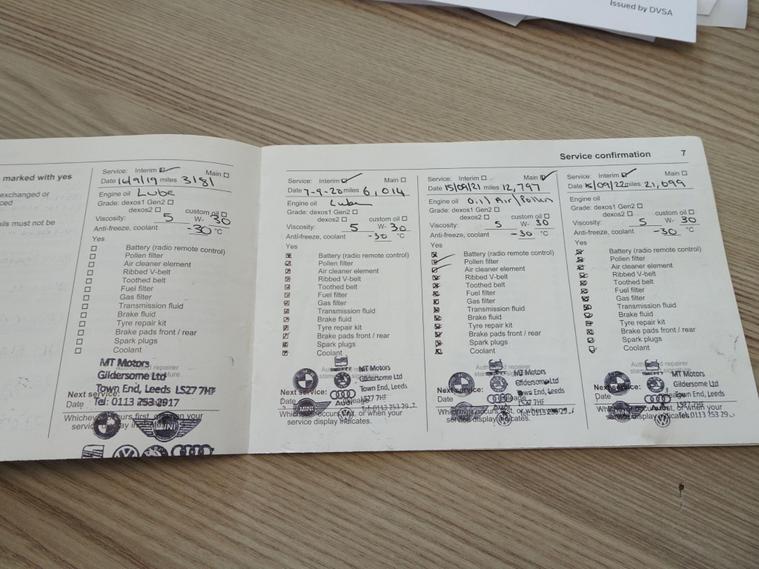 Issued by DVSA
marked with yes
exchanged or
ced
ils must not be
Service: Interim Main
Date 14/9/19 miles 3181
Engine oil Lube
Grade: dexos1 Gen2
dexos2 custom oil
Viscosity: 5 W- 30
Anti-freeze, coolant -30 °C
Yes
Battery (radio remote control)
Pollen filter
Air cleaner element
Ribbed V-belt
Toothed belt
Fuel filter
Gas filter
Transmission fluid
Brake fluid
Tyre repair kit
Brake pads front / rear
Spark plugs
Coolant
MT Motors
Gildersome Ltd
Town End, Leeds LS27 7HF
Tel: 0113 253 2917
Next service:
Date
MINI
Service: Interim Main
Date 7-9-20 miles 6,014
Engine oil Lube
Grade: dexos1 Gen2
dexos2 custom oil
Viscosity: 5 W- 30
Anti-freeze, coolant -30 °C
Yes
Battery (radio remote control)
Pollen filter
Air cleaner element
Ribbed V-belt
Toothed belt
Fuel filter
Gas filter
Transmission fluid
Brake fluid
Tyre repair kit
Brake pads front / rear
Spark plugs
Coolant
MT Motors
Gildersome Ltd
Town End, Leeds
LS27 7HF
Next service:
Date
MINI
service display indicates.
Service confirmation 7
Service: Interim Main
Date 15/09/21 miles 12,797
Engine oil Oil/Air/Pollen
Grade: dexos1 Gen2
dexos2 custom oil
Viscosity: 5 W- 30
Anti-freeze, coolant -30 °C
Yes
Battery (radio remote control)
Pollen filter
Air cleaner element
Ribbed V-belt
Toothed belt
Fuel filter
Gas filter
Transmission fluid
Brake fluid
Tyre repair kit
Brake pads front / rear
Spark plugs
Coolant
MT Motors
Gildersome Ltd
Town End, Leeds
LS27 7HF
Date
MINI
Service: Interim Main
Date 15/09/22 miles 21,099
Engine oil
Grade: dexos1 Gen2
dexos2 custom oil
Viscosity: 5 W- 30
Anti-freeze, coolant -30 °C
Yes
Battery (radio remote control)
Pollen filter
Air cleaner element
Ribbed V-belt
Toothed belt
Fuel filter
Gas filter
Transmission fluid
Brake fluid
Tyre repair kit
Brake pads front / rear
Spark plugs
Coolant
MT Motors
Gildersome Ltd
Town End, Leeds
LS27 7HF
Next service:
Date
MINI